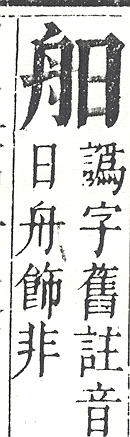 ⿰舟日
譌字舊註音
日舟飾非